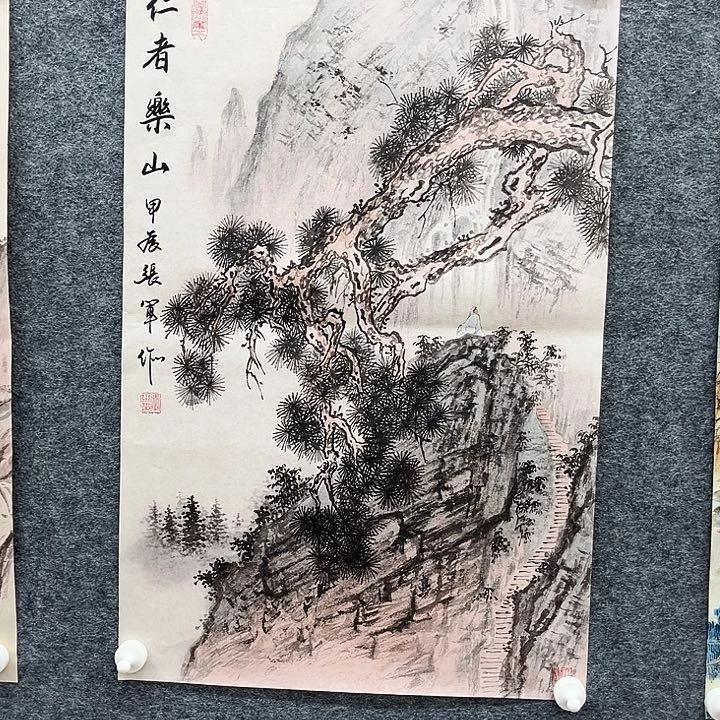 仁者樂山甲辰張軍作